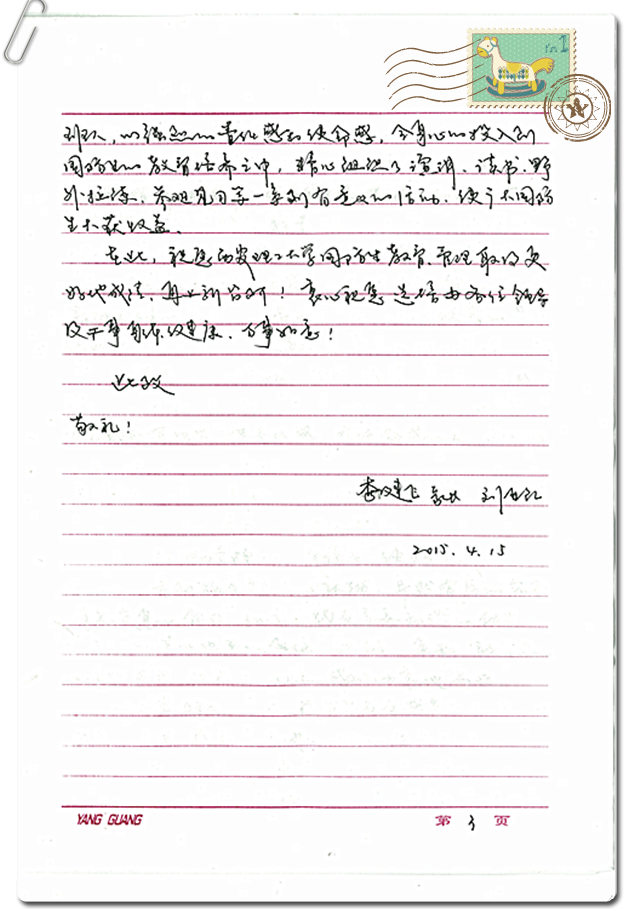 到队，以强烈的责任感和使命感，全身心的投入到
国防生的教育培养之中，精心组织了演讲、读书、野
外拉练、参观见习等一系列有意义的活动，使广大国防
生大获收益。
在此，祝愿西安理工大学国防生教育、管理取得更
好地成绩，再上新台阶！衷心祝愿选培办各位领导
及干事身体健康、万事如意！
此致
敬礼！
李建飞 家长 刘
2015.4.15
YANG GUANG
第 3 页